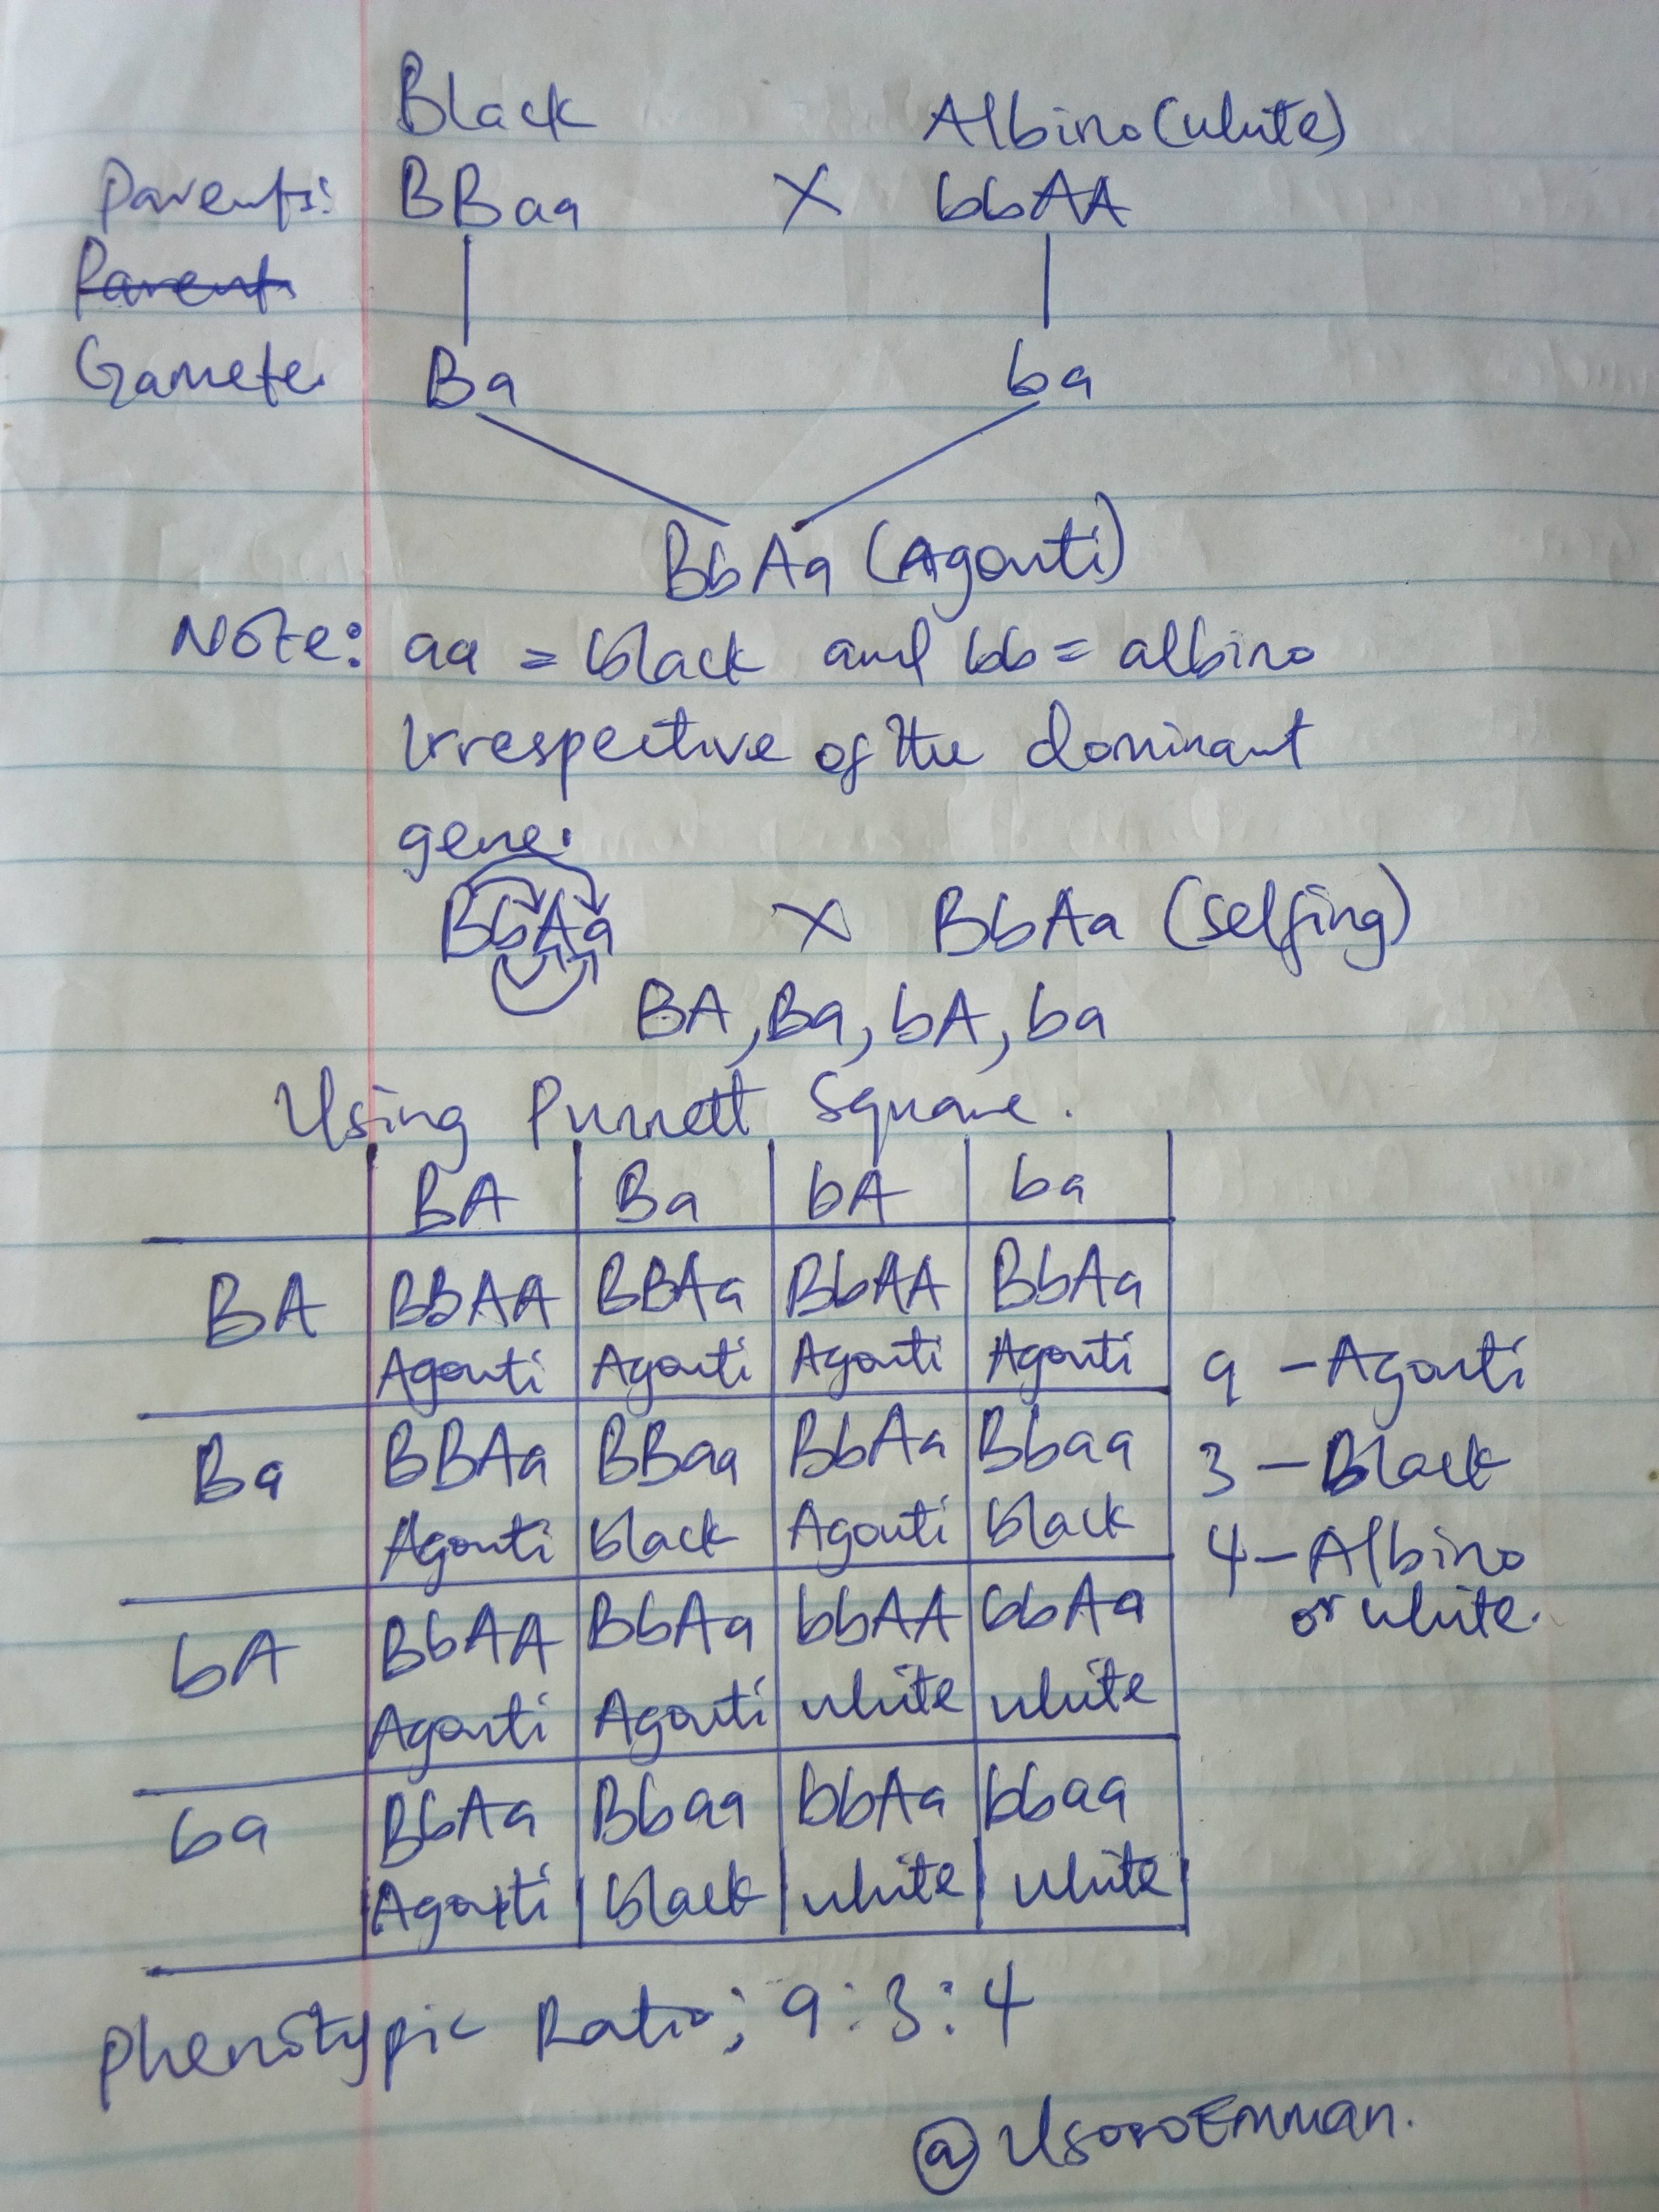 Black Albino (white)
Parents: BBaa X bbAA
Parents
Gamete. Ba ba
BbAa (Agouti)
Note: aa = black and bb = albino
Irrespective of the dominant
gene.
BbAa X BbAa (selfing)
BA, Ba, bA, ba
Using Punnett Square.
BA Ba bA ba
BA BBAA BBAa BbAA BbAa
Agouti Agouti Agouti Agouti 9 - Agouti
Ba BBAa BBaa BbAa Bbaa 3 - Black
Agouti black Agouti black 4 - Albino
or white.
bA BbAA BbAa bbAA bbAa
Agouti Agouti white white
ba BbAa Bbaa bbAa bbaa
Agouti black white white
Phenotypic Ratio; 9:3:4
@UsoroEmman.